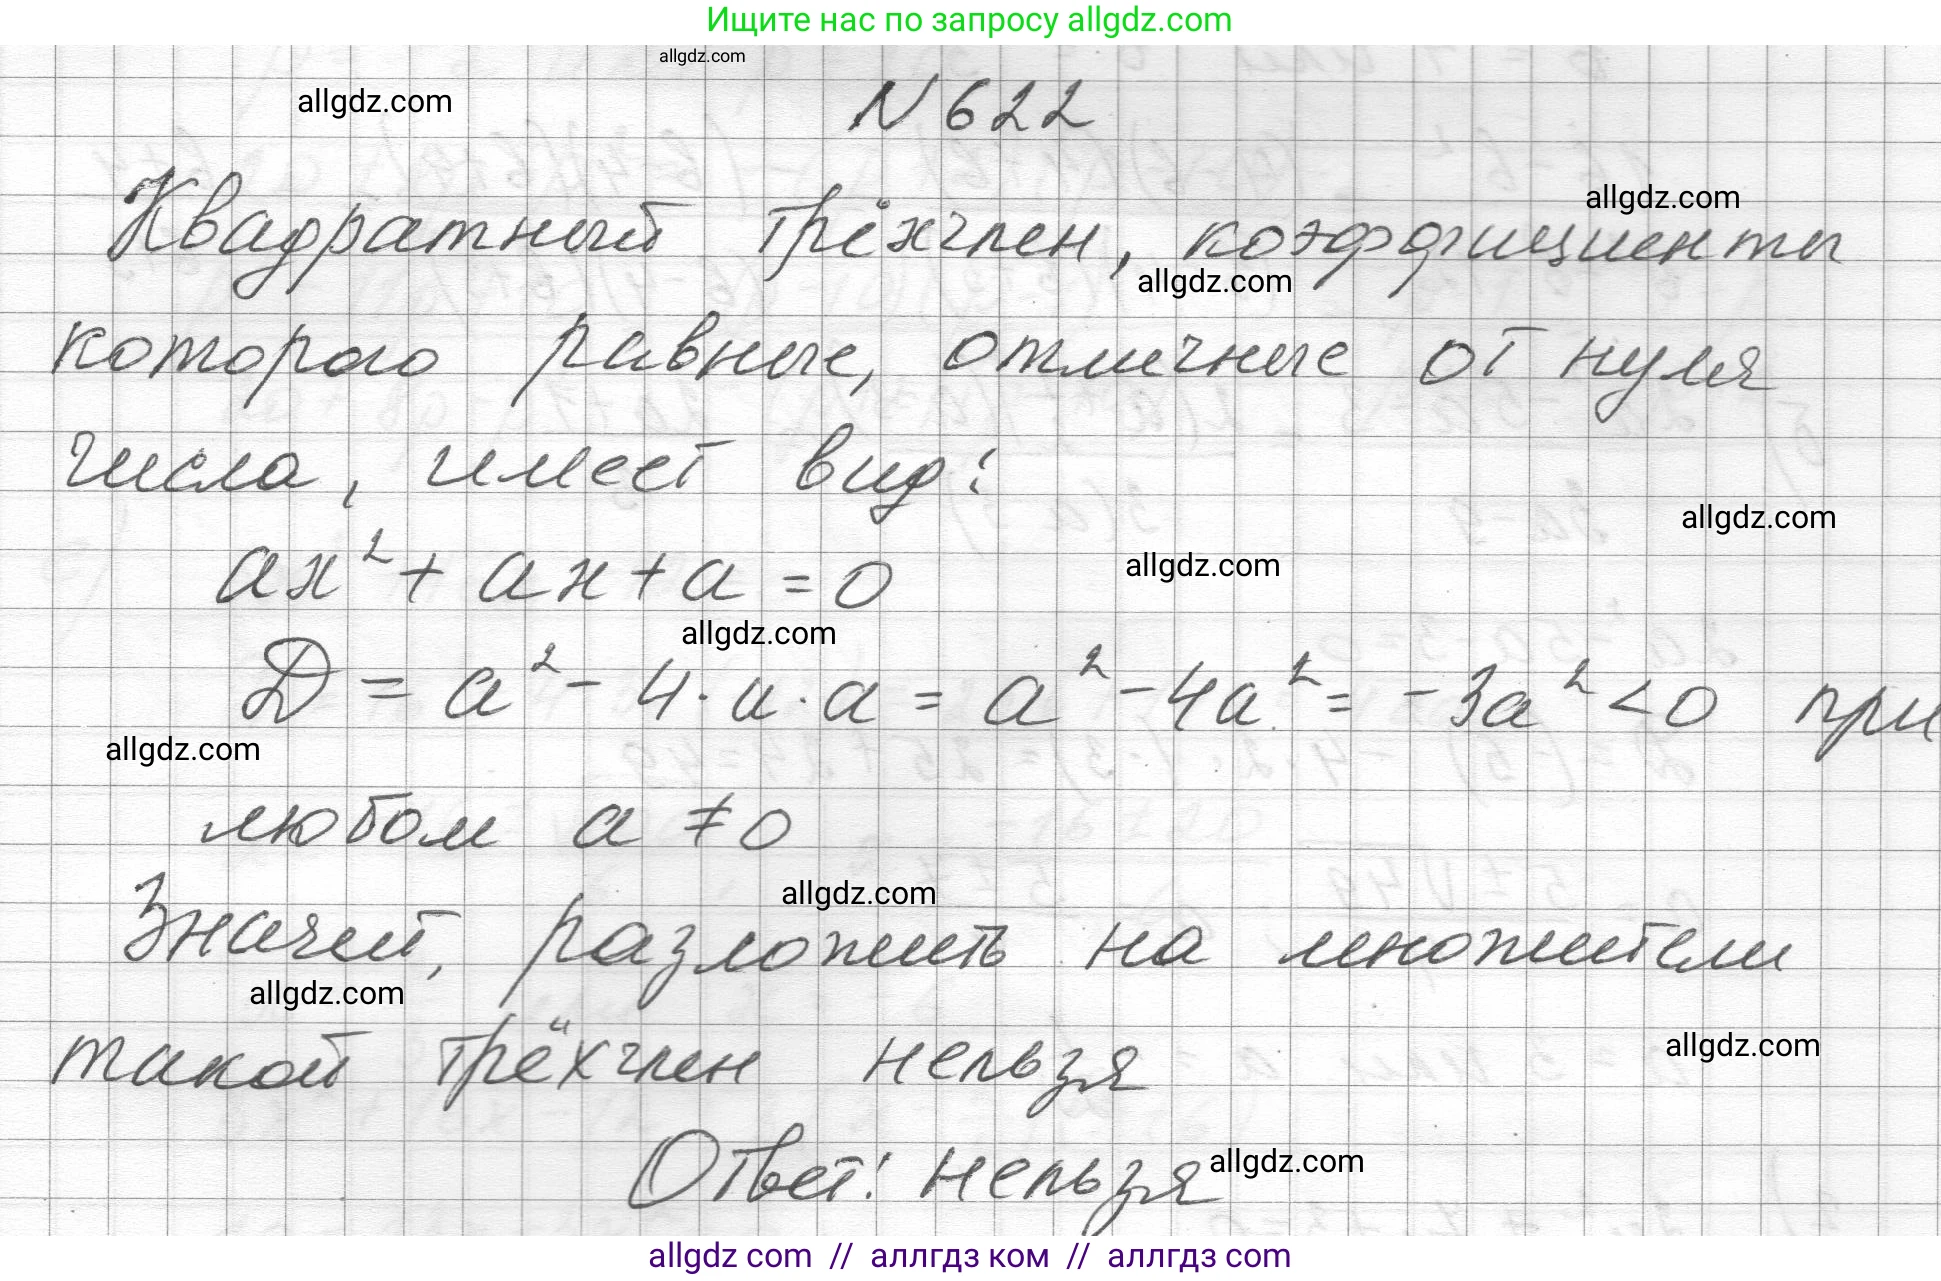 Ищите нас по запросу allgdz.com
allgdz.com
allgdz.com
N 622
allgdz.com
Квадратный трёхчлен, коэффициенты
allgdz.com
которого равные, отличные от нуля
числа, имеет вид:
allgdz.com
ax² + ax + a = 0
allgdz.com
allgdz.com
D = a² - 4·a·a = a² - 4a² = -3a² < 0 при
allgdz.com
любом a ≠ 0
allgdz.com
Значит, разложить на множители
allgdz.com
такой трёхчлен нельзя
allgdz.com
Ответ: нельзя
allgdz.com
allgdz com // аллгдз ком // аллгдз com